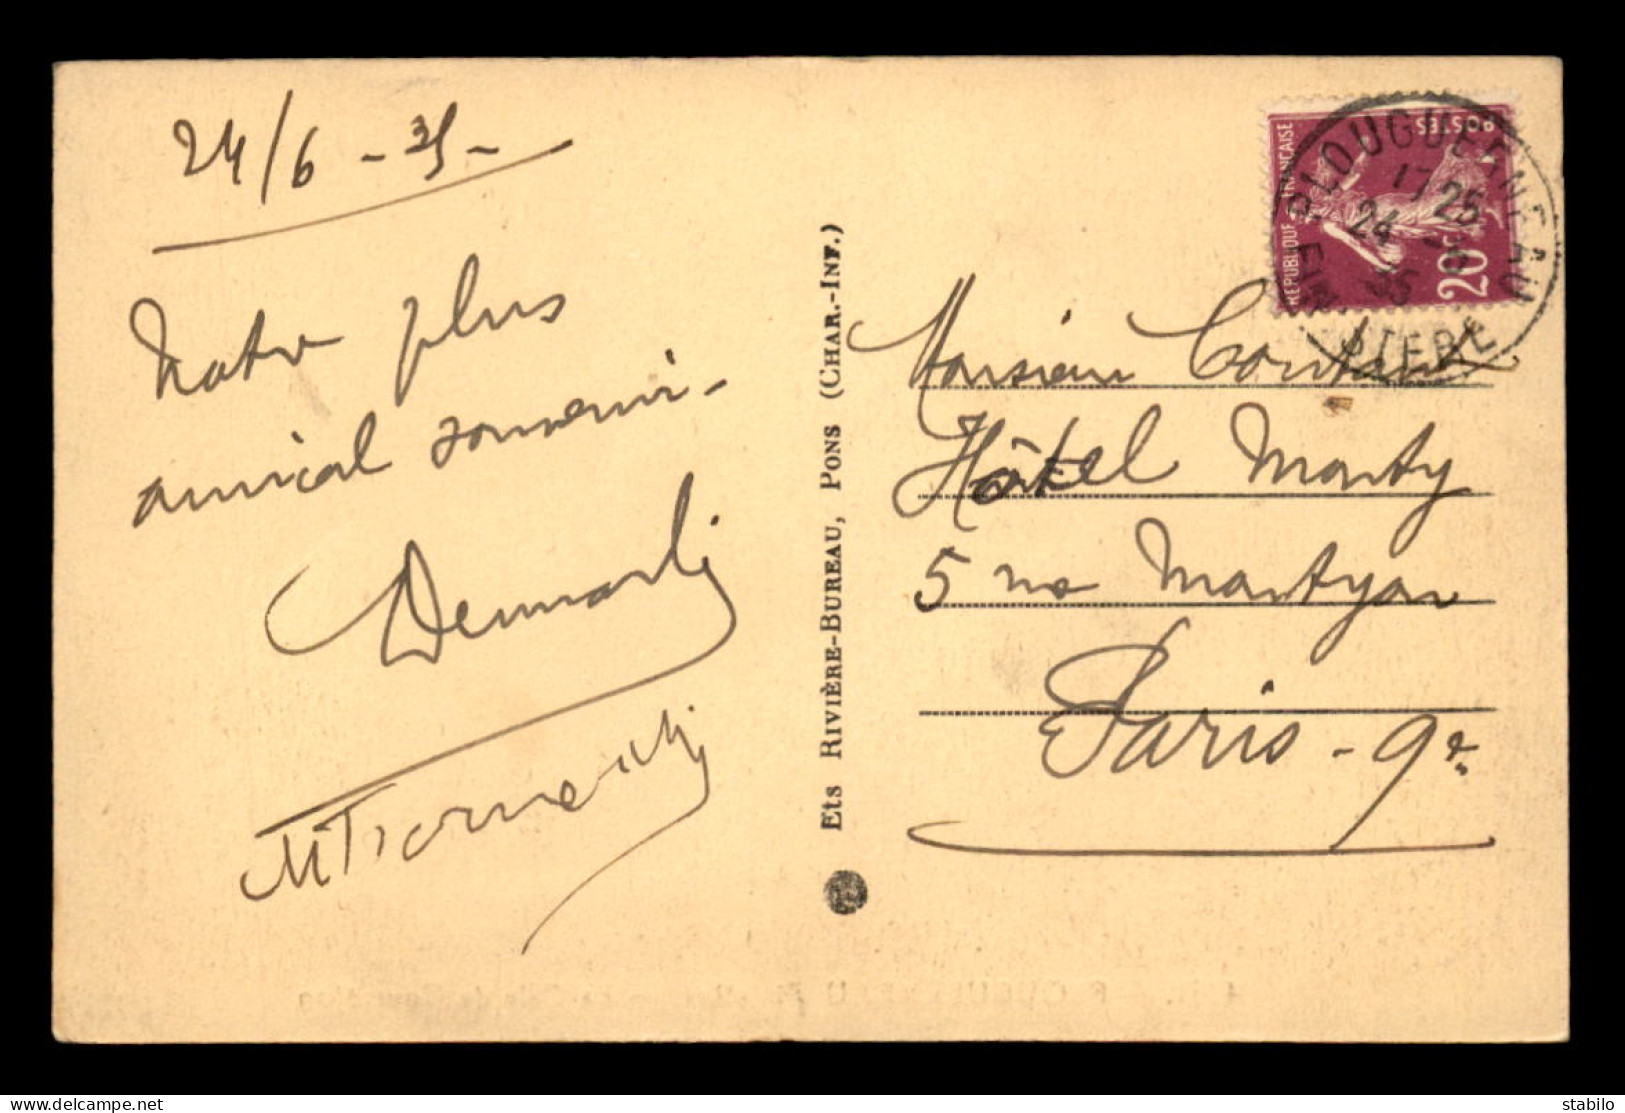 24/6 - 35 -
Notre plus
amical souvenir -
Ets RIVIÈRE-BUREAU, PONS (CHAR.-INF.)
POSTES
REPUBLIQUE FRANÇAISE
20c
PLOUGUERNEAU
17 25
24
35
FINISTERE
Monsieur
Hôtel Marty
5 rue Martyrs
Paris - 9e
delcampe.net
stabilo